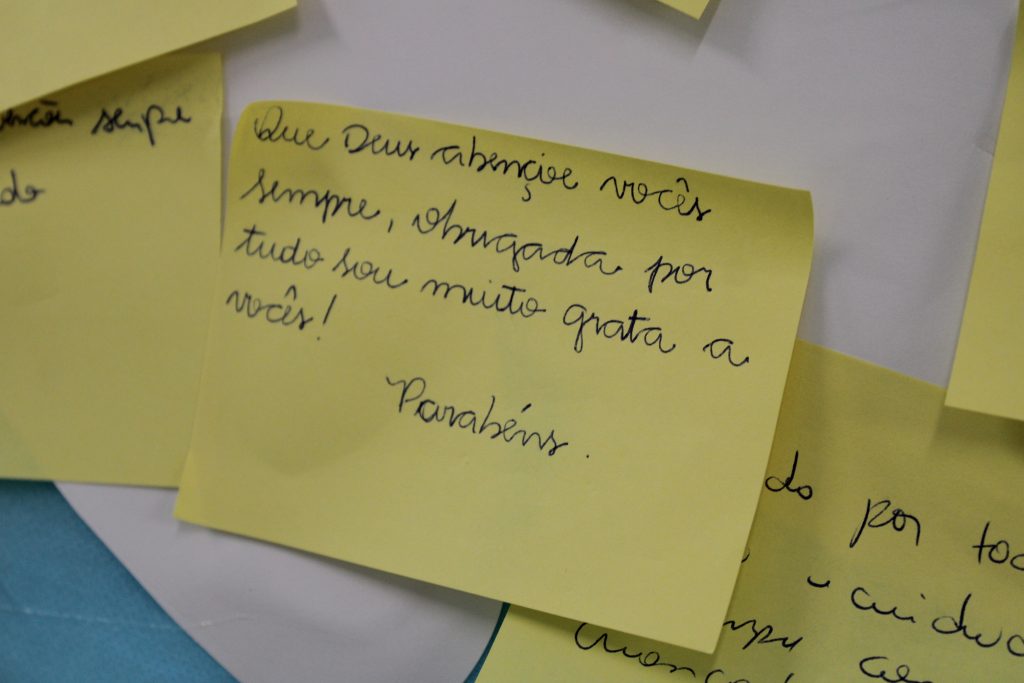 sempre
do
Que Deus abençoe vocês
sempre, obrigada por
tudo sou muito grata a
vocês!
Parabéns.
do por
cuidad